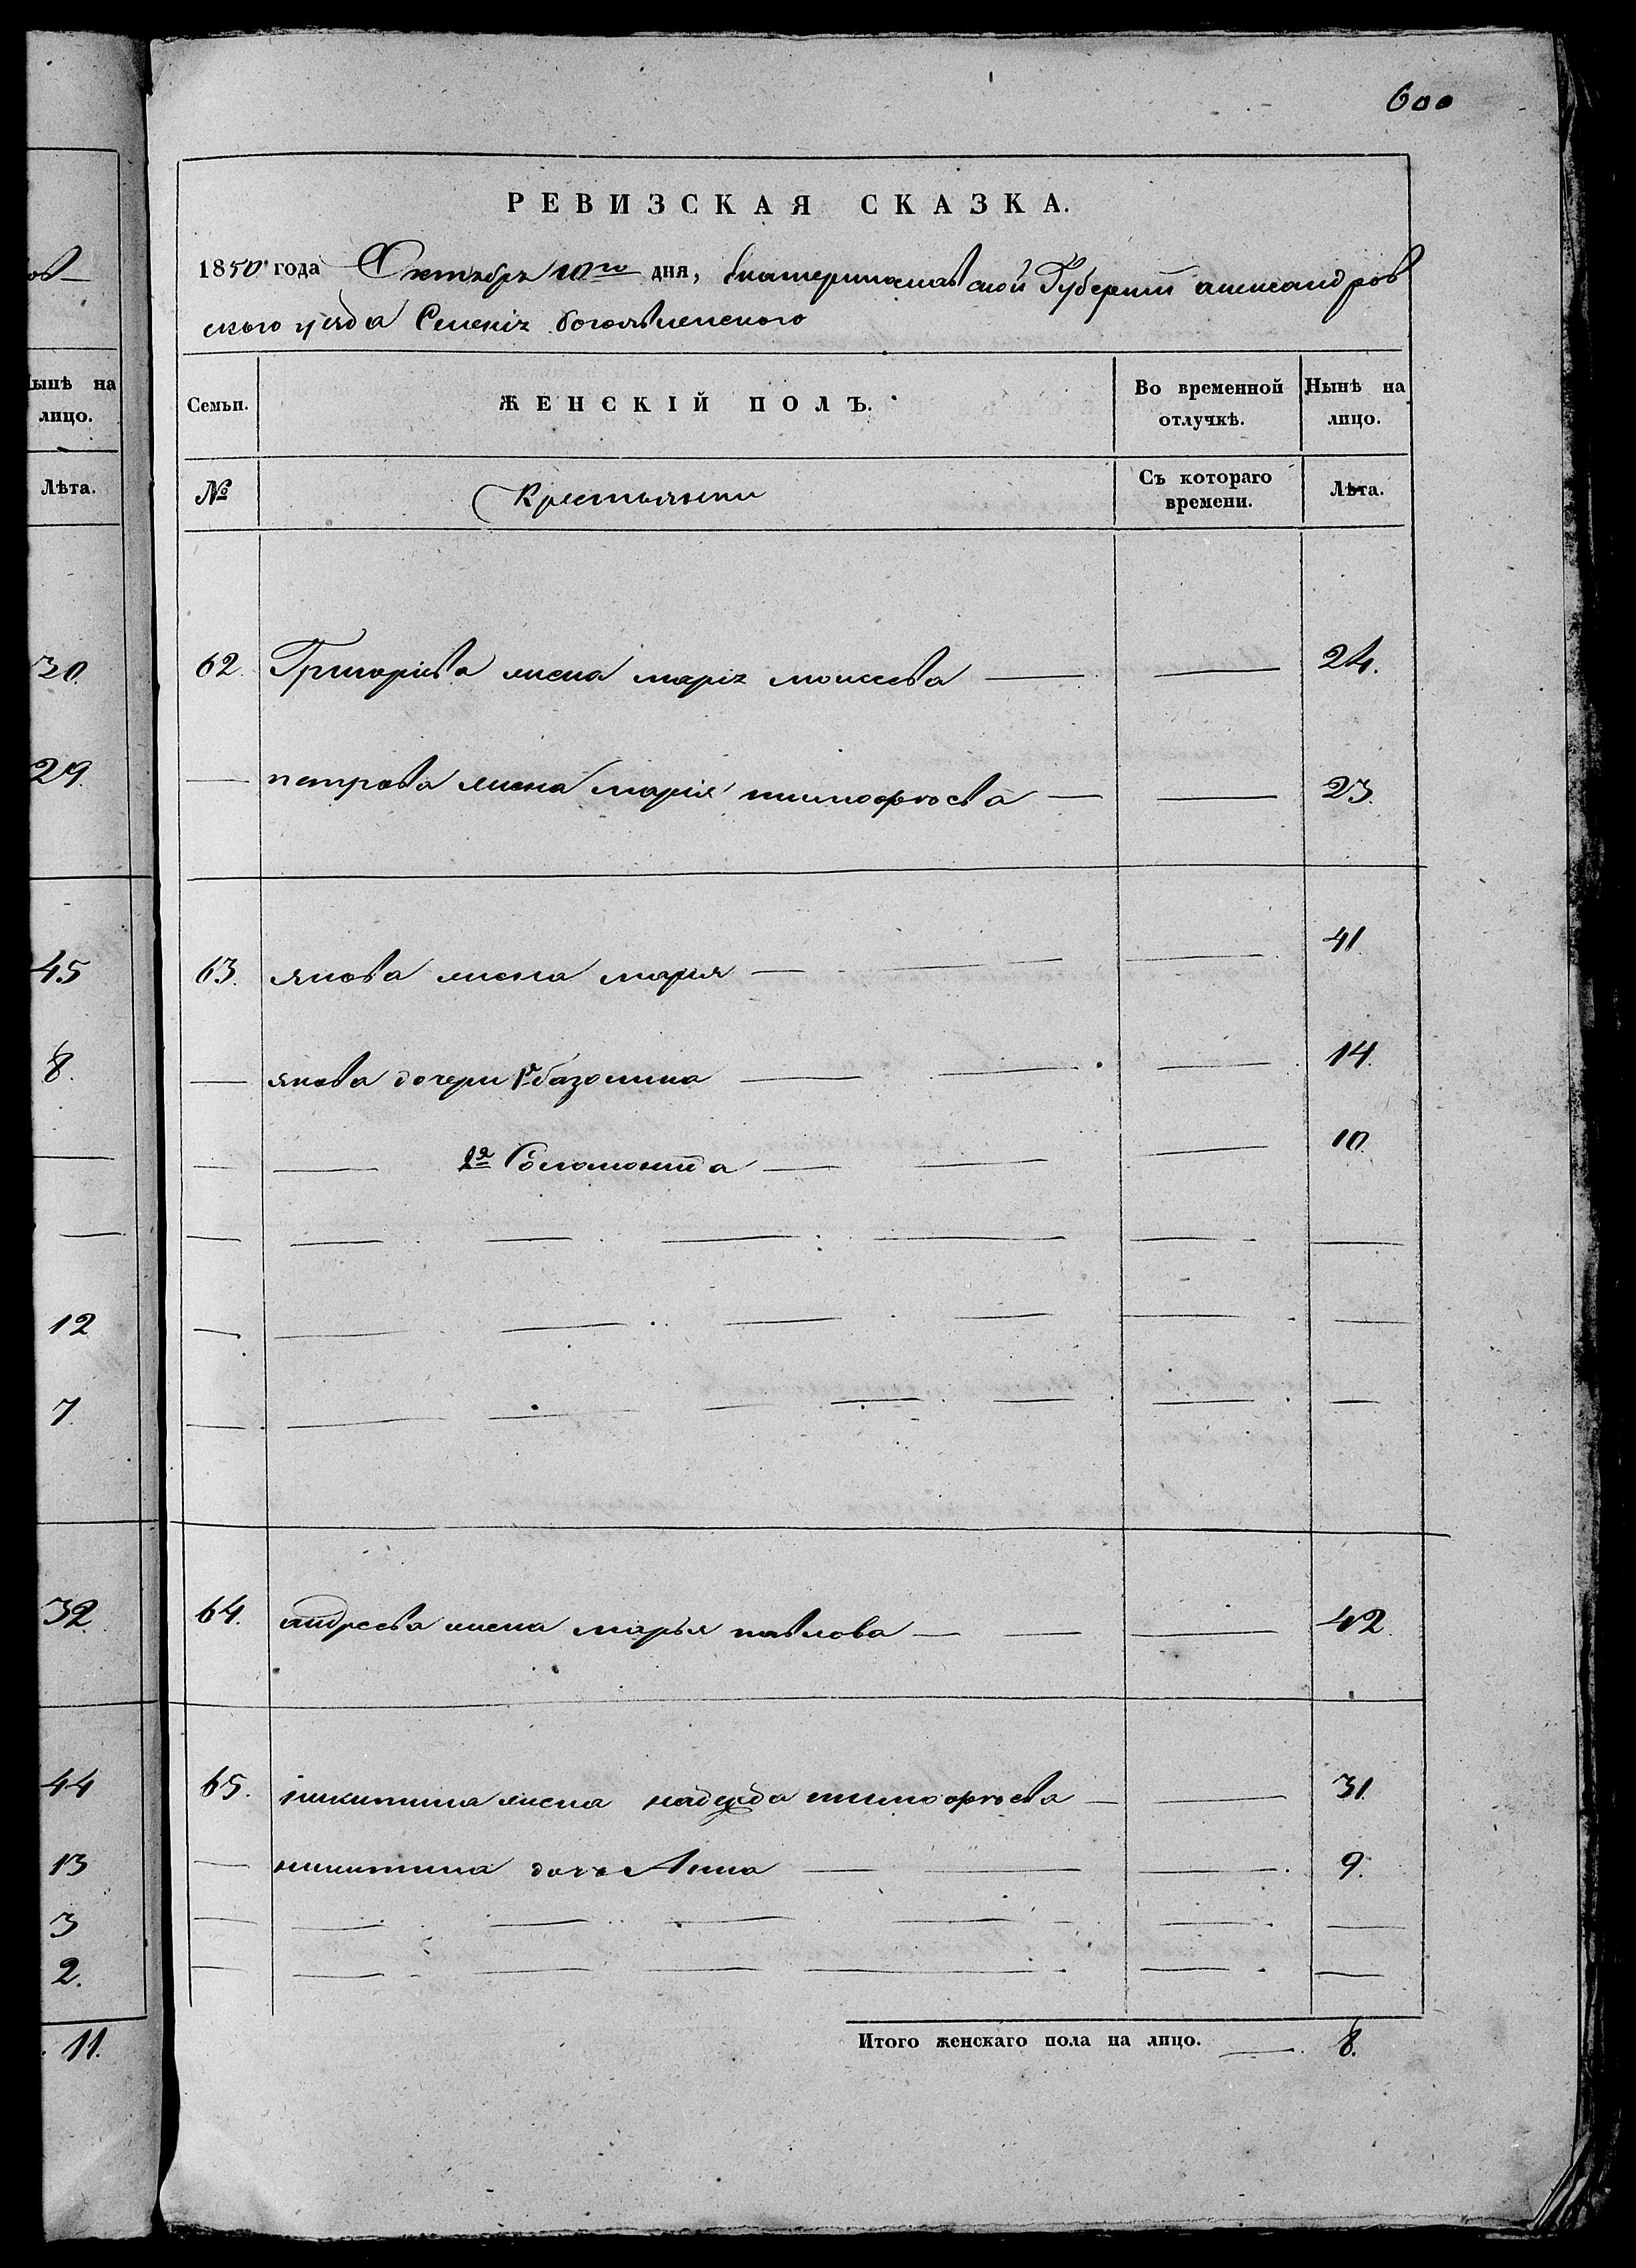 ов
Нынѣ на
лицо.
Лѣта.
30.
29.
45
8.
12
7.
32.
44
13
3
2.
11.
600
РЕВИЗСКАЯ СКАЗКА.
1850 года Октября 10го дня, Екатеринославской Губернии александров
ского уезда Селения богоявленского
Семьи. ЖЕНСКІЙ ПОЛЪ. Во временной отлучкѣ. Нынѣ на лицо.
№ Крестьянки Съ котораго времени. Лѣта.
62. Григориева жена мария моисеева 24.
петрова жена мария тимофѣева 23.
63. якова жена мария 41.
якова дочери 1я 14.
2я Соломонида 10.
64. андреева жена марья павлова 42.
65. никитина жена надежда тимофѣева 31.
никитина дочь Анна 9.
Итого женскаго пола на лицо. 8.